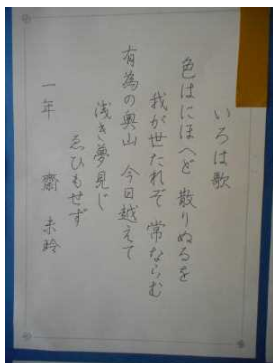 いろは歌
色はにほへど 散りぬるを
我が世たれぞ 常ならむ
有為の奥山 今日越えて
浅き夢見じ
ゑひもせず
一年 齋 未玲